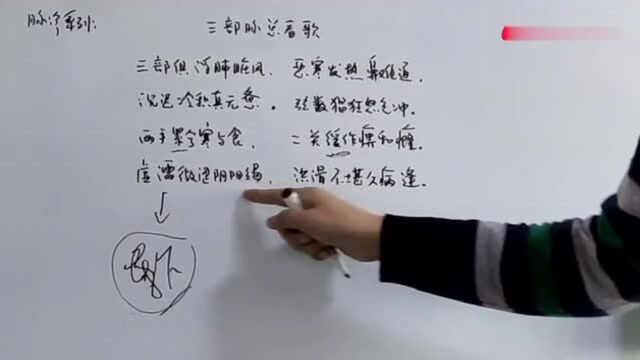 脉诊系列:
三部脉总看歌
三部俱浮肺脏风、恶寒发热鼻难通。
沉迟冷积真元惫。弦数猖狂怒气冲。
两手紧兮寒与食、二关缓作痹和癃。
虚濡微涩阴阳竭、洪滑不堪久病逢。